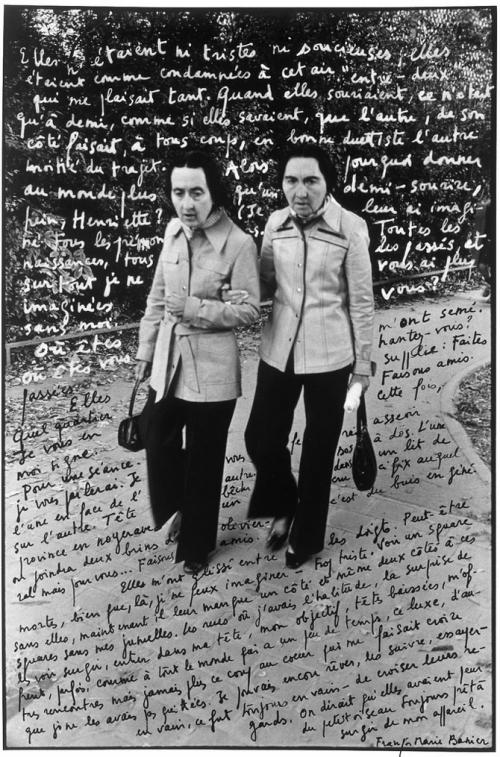 Elles n'étaient ni tristes ni soucieuses; elles
étaient comme condamnées à cet air "entre-deux"
qui me plaisait tant. Quand elles souriaient, ce n'était
qu'à demi, comme si elles savaient, que l'autre, de son
côté faisait à tous coup, en bonne duettiste l'autre
moitié du trajet. Alors pourquoi donner
au monde plus qu'un demi-sourire,
hein, Henriette? (Je leur ai imagi-
né tous les prénoms. Toutes les
naissances, tous les passés, et
surtout je ne vous ai plus
imaginées vous?
sans moi. m'ont semé.
Où êtes hantez-vous?
où êtes vous supplie: Faites
passées. Faisons amis.
Elles cette fois,
Quel quartier
Je vous en
moi signe. asseoir
Pour une séance. vous dos à dos. L'une
je vous paierai. Je autre. dans un lit de
l'une en face de l' un fix auquel
sur l'autre. Tête c'est du buis en géné-
province en noyeraie
on joindra deux brins d'olivier.
ral mais pour vous... Faisons amis.
Elles m'ont glissé entre les doigts. Peut-être
mortes, bien que, là, je ne peux imaginer. Trop triste. Voir un square
sans elles, maintenant il leur manque un côté et même deux côtés à ces
squares sans mes jumelles. Les rues où j'avais l'habitude, la surprise de
les voir surgir, entier dans ma tête, mon objectif, têtes baissées, m'of-
frent, parfois, comme à tout le monde j'ai un peu de temps, ce luxe, d'au-
tres rencontres mais jamais plus ce coup au coeur qui me faisait croire
que je ne les avais pas quittées. Je pouvais encore rêver, les suivre, essayer-
en vain, ce fut toujours en vain- de croiser leurs re-
gards. On dirait qu'elles avaient peur
du petit oiseau toujours prêt à
surgir de mon appareil.
François-Marie Banier